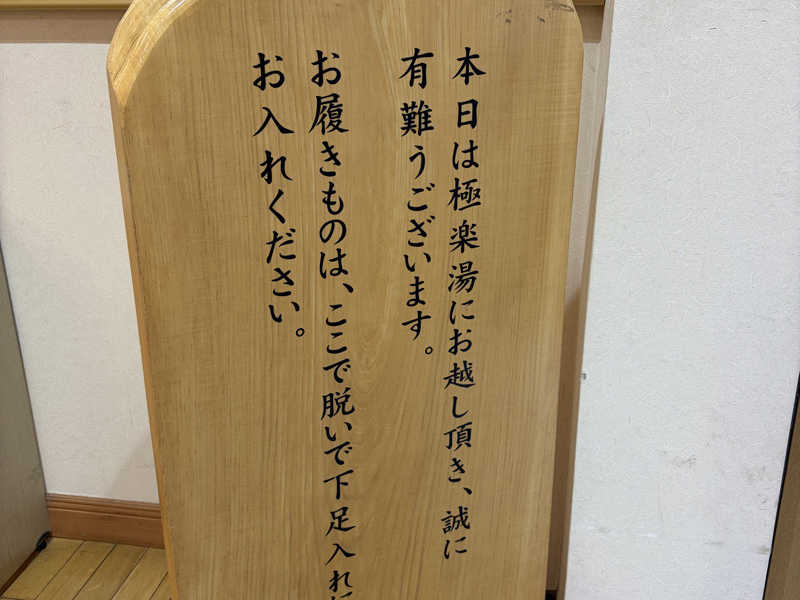 本日は極楽湯にお越し頂き、誠に
有難うございます。
お履きものは、ここで脱いで下足入れに
お入れください。